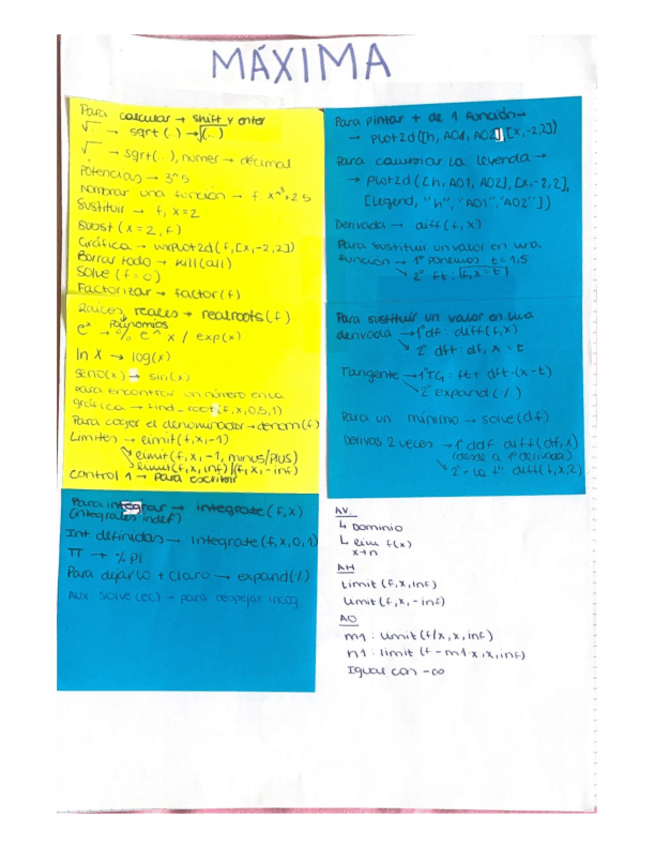 MÁXIMA
Para calcular → shift y enter
√. → sqrt(.) → √(..)
√ → sqrt(...), numer → décimal
Potencias → 3^5
Nombrar una función → f: x^3+25
Sustituir → f, x=2
subst (x=2, f)
Gráfica → wxplot2d(f,[x,-2,2])
Borrar todo → kill(all)
Solve (f=0)
Factorizar → factor(f)
Raíces reales → realroots(f)
polinomios
e^x → % e^ x / exp(x)
ln x → log(x)
seno(x) → sin(x)
para encontrar un número en la
gráfica → find_root(f,x,0.5,1)
Para coger el denominador → denom(f)
Limites → limit(f,x,-1)
↘ limit(f,x,-1, minus/plus)
↘ limit(f,x,inf)/(f,x,-inf)
control 1 → para escribir
Para integrar → integrate(f,x)
(integrales indef)
Int definidas → integrate(f,x,0,1)
π → %pi
Para dejarlo + claro → expand(%)
Aux: solve(ec) → para despejar incog
Para pintar + de 1 función →
→ plot2d([h, AO1, AO2],[x,-2,2])
Para cambiar la leyenda →
→ plot2d([h, AO1, AO2],[x,-2,2],
[legend, "h", "AO1", "AO2"])
Derivada → diff(f,x)
Para sustituir un valor en una
función → 1º ponemos t=1,5
↘ 2º ft: f,x=t
Para sustituir un valor en una
derivada → 1º df: diff(f,x)
↘ 2º dft: df, x=t
Tangente → 1º TG: ft+dft·(x-t)
↘ 2º expand(%)
Para un mínimo → solve(df)
Derivas 2 veces → 1º ddf: diff(df,x)
(desde la 1ª derivada)
↘ 2º la fª diff(f,x,2)
AV.
↳ Dominio
↳ lim f(x)
x→n
AH
limit(f,x,inf)
limit(f,x,-inf)
AO
m1: limit(f/x,x,inf)
n1: limit(f-m1·x,x,inf)
Igual con -∞